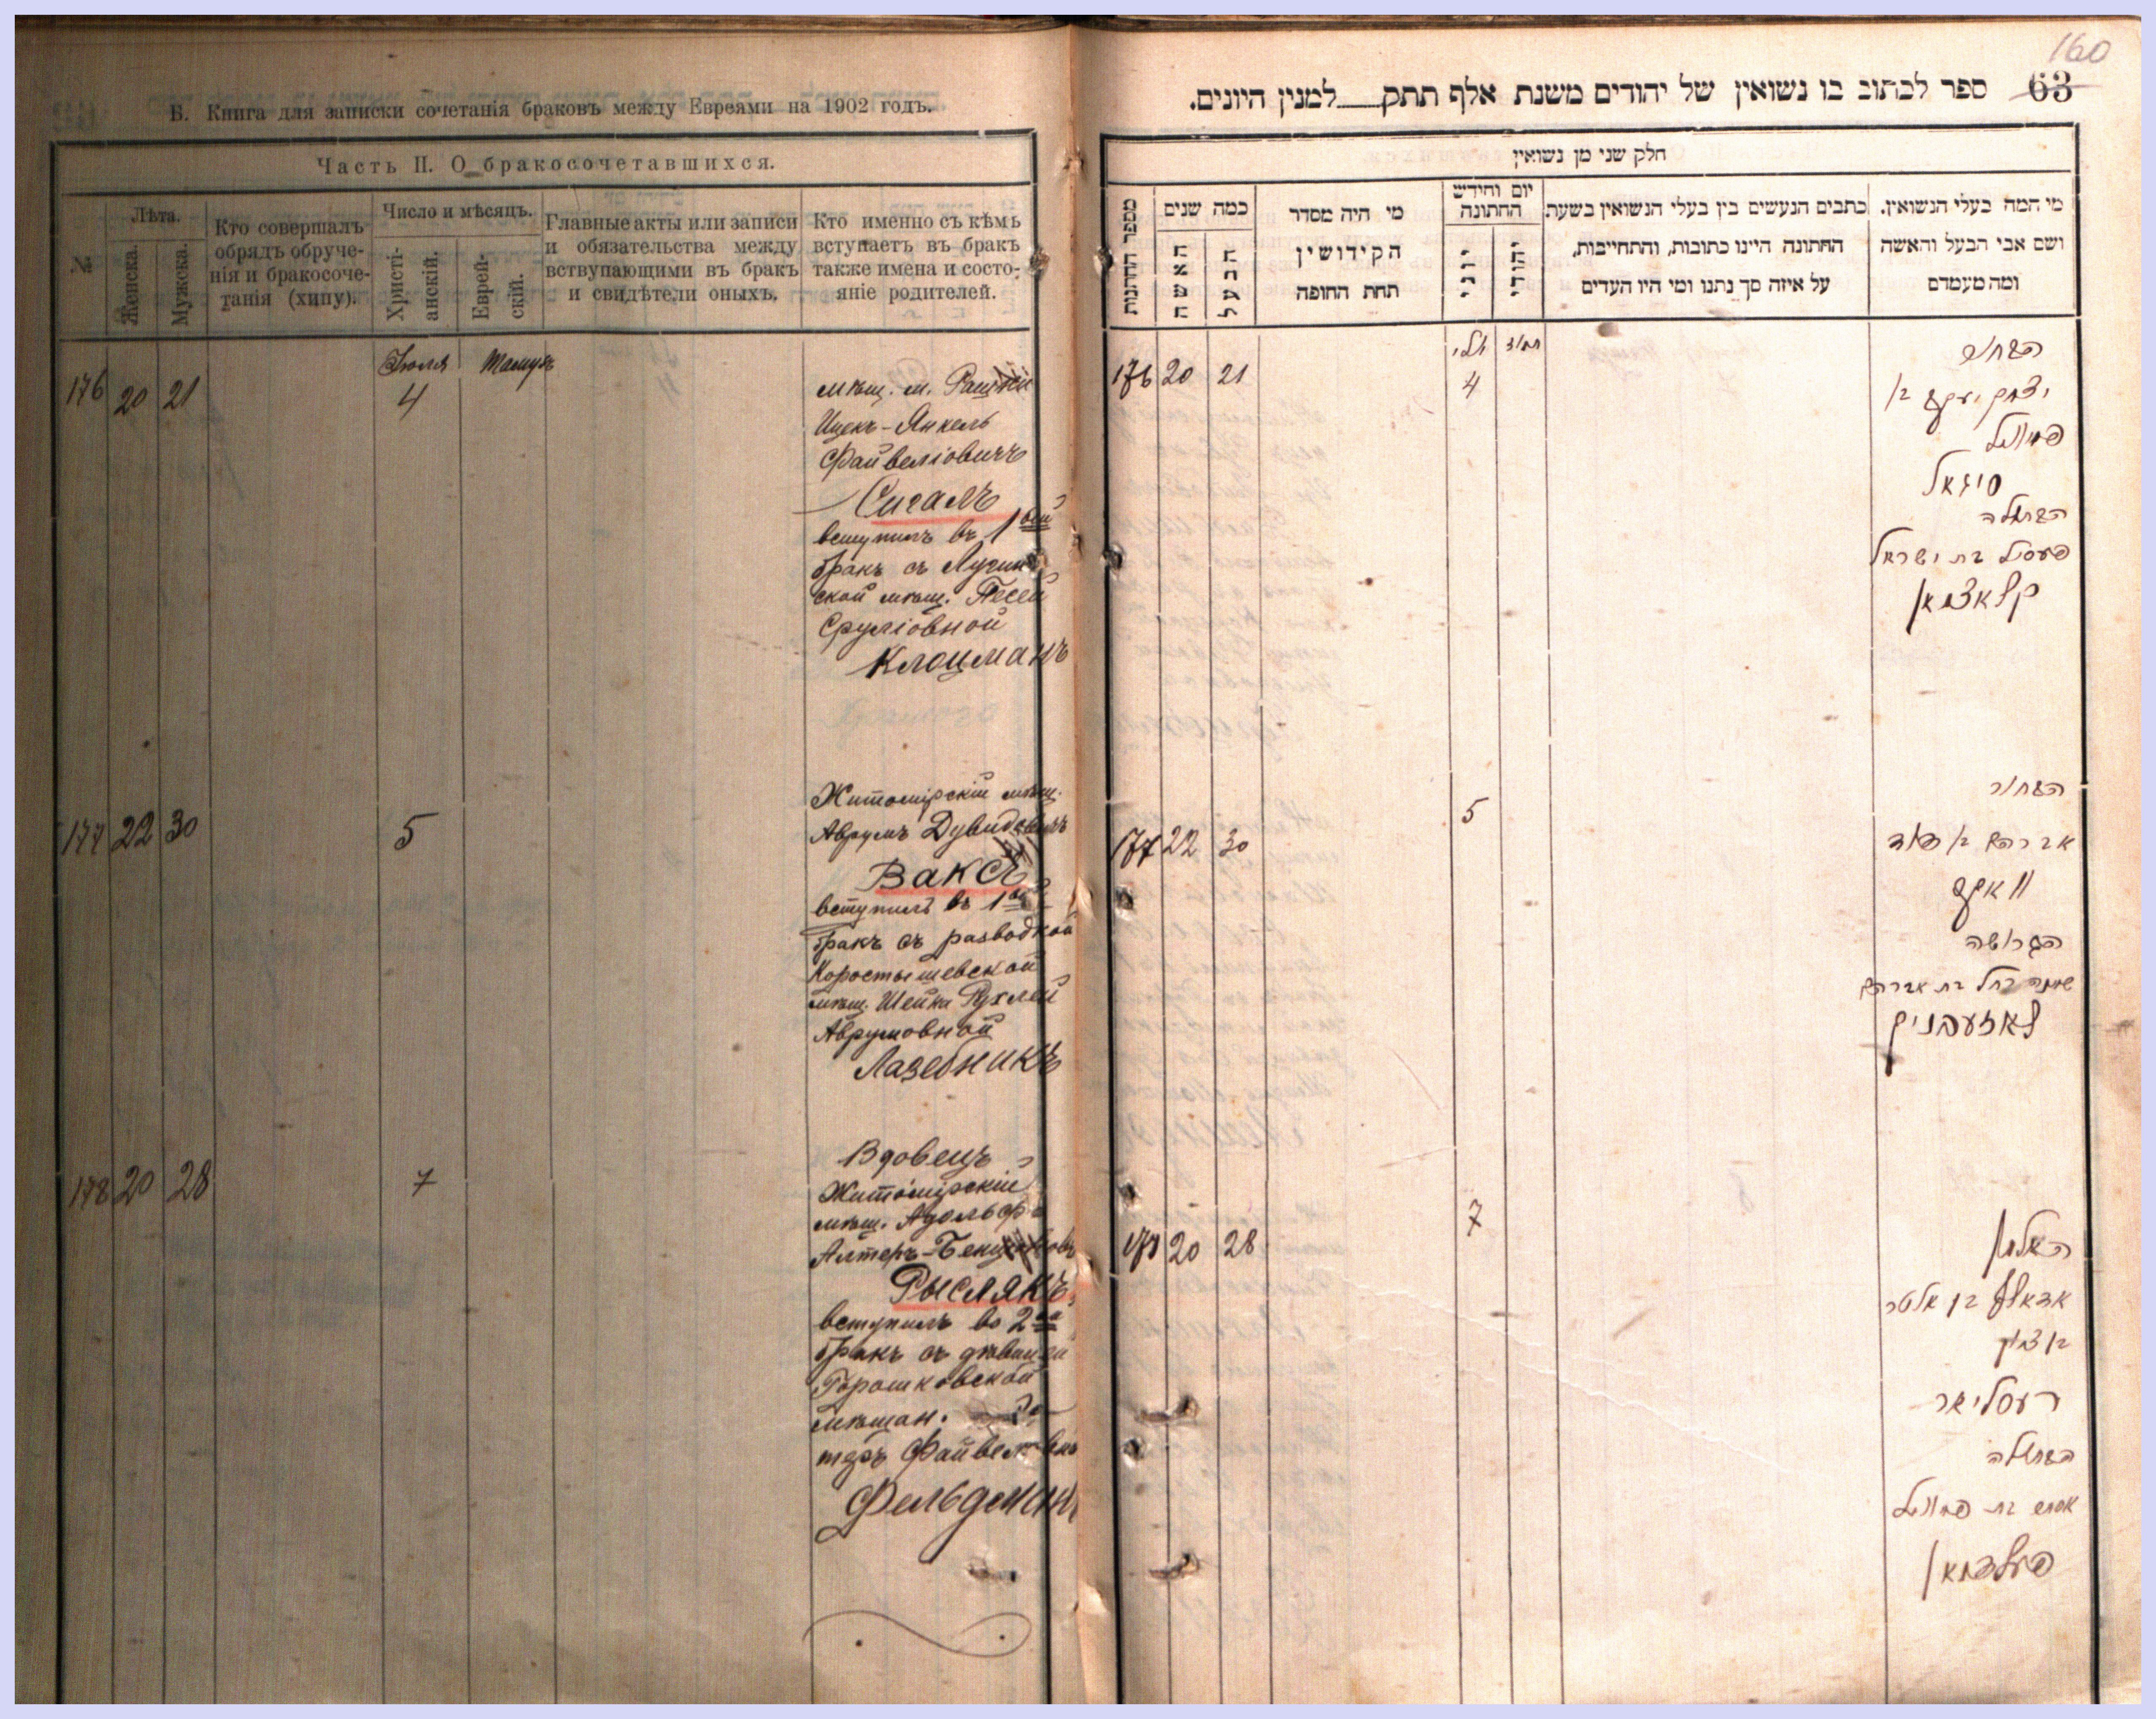 Б. Книга для записки сочетанія браковъ между Евреями на 1902 годъ.
Часть II. О бракосочетавшихся.
№
Лѣта.
Женска.
Мужска.
Кто совершалъ
обрядъ обруче-
нія и бракосоче-
танія (хипу).
Число и мѣсяцъ.
Христі-
анскій.
Еврей-
скій.
Главные акты или записи
и обязательства между
вствупающими въ бракъ
и свидѣтели оныхъ.
Кто именно съ кѣмъ
вступаетъ въ бракъ
также имена и состо-
яніе родителей.
Іюля Тамузъ
176 20 21 4
мѣщ. м.
Ицекъ-Янкель
Файвеліовичъ
Сигалъ
вступилъ въ 1вый
бракъ съ
ской мѣщ. Песей
Сруліовной
Клоцманъ
177 22 30 5
Житомірскій мѣщ.
Аврумъ Дувидовичъ
Ваксъ
вступилъ въ 1вый
бракъ съ разводкой
Коростышевской
мѣщ. Шейна Рухлей
Аврумовной
Лазебникъ
178 20 28 7
Вдовецъ
Житомірскій
мѣщ. Адольфъ
Алтеръ-
Рыслякъ
вступилъ во 2ой
бракъ съ дѣвицей
Горошковской
мѣщан.
Фельдманъ
160
63
ספר לכתוב בו נשואין של יהודים משנת אלף תתק למנין היונים.
חלק שני מן נשואין
מספר החתונות
כמה שנים
האשה
הבעל
מי היה מסדר
הקידושין
תחת החופה
יום וחידש
החתונה
יוני
יהודי
כתבים הנעשים בין בעלי הנשואין בשעת
החתונה היינו כתובות, והתחייבות,
על איזה סך נתנו ומי היו העדים
מי המה בעלי הנשואין.
ושם אבי הבעל והאשה
ומה מעמדם
יולי תמוז
176 20 21 4
הבחור
יצחק יעקב בן
פייוויל
סיגאל
הבתולה
פעסיל בת ישראל
קלאצמאן
177 22 30 5
הבחור
אברהם בן דוד
וואקס
הגרושה
שיינה רחל בת אברהם
לאזעבניק
178 20 28 7
האלמן
אדאלף בן אלטר
הבתולה
אסתר בת פייוויל
פעלדמאן